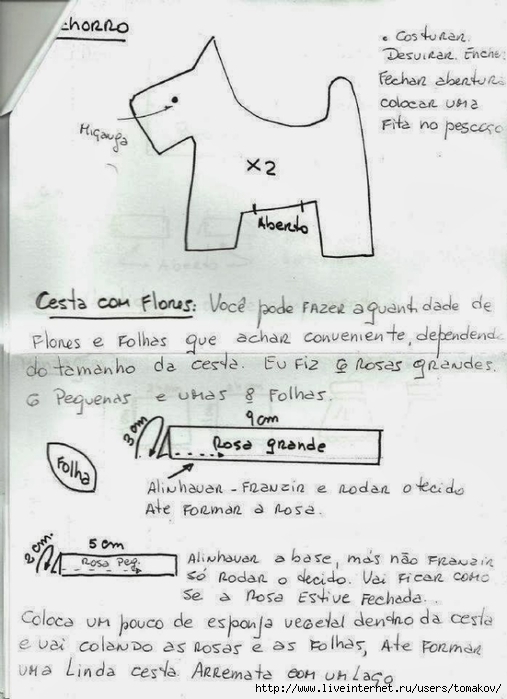 CHORRO
• COSTURAR.
DESVIRAR. ENCHE:
FECHAR ABERTURA
COLOCAR UMA
FITA NO PESCOÇO
Miçanga
X2
Aberto
Cesta com Flores: Você pode FAZER a quantidade de
Flores e Folhas que achar conveniente, dependend.
do tamanho da cesta. Eu Fiz 6 ROSAS grandes.
6 Pequenas e umas 8 Folhas.
9cm
3 cm
Rosa grande
Folha
Alinhavar - Franzir e Rodar o tecido
Ate Formar a Rosa.
2 cm
5 cm
Rosa Peq.
Alinhavar a base, más não Franzir
só Rodar o tecido. Vai Ficar como
se a Rosa Estive Fechada.
Coloca um pouco de esponja vegetal dentro da cesta
e vai colando as Rosas e as Folhas, Ate Formar
uma Linda cesta. Arremata com um Laço
http://www.liveinternet.ru/users/tomakov/